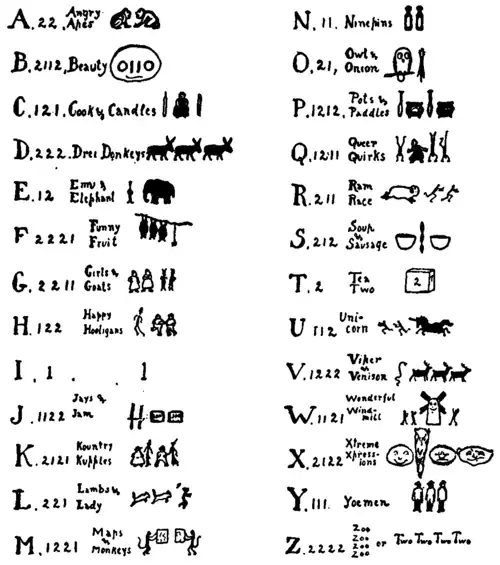 A. 22. Angry Apes
B. 2112, Beauty 0110
C. 121. Cook & Candles
D. 222. Drei Donkeys
E. 12 Emu & Elephant
F 2221 Funny Fruit
G. 2211 Girls & Goats
H. 122 Happy Hooligans
I. 1. 1
J. 1122 Jays & Jam
K. 2121 Kountry Kupples
L. 221 Lambs & Lady
M. 1221 Maps & Monkeys
N. 11. Ninepins
O. 21, Owl & Onion
P. 1212. Pots & Paddles
Q. 1211 Queer Quirks
R. 211 Ram Race
S. 212 Soup & Sausage
T. 2 Tea Two 2
U 112 Uni-corn
V. 1222 Viper & Venison
W. 1121 Wonderful Wind-mill
X. 2122 Xtreme Xpress-ions
Y. 111. Yoemen
Z. 2222 Zoo Zoo Zoo Zoo or Two Two Two Two